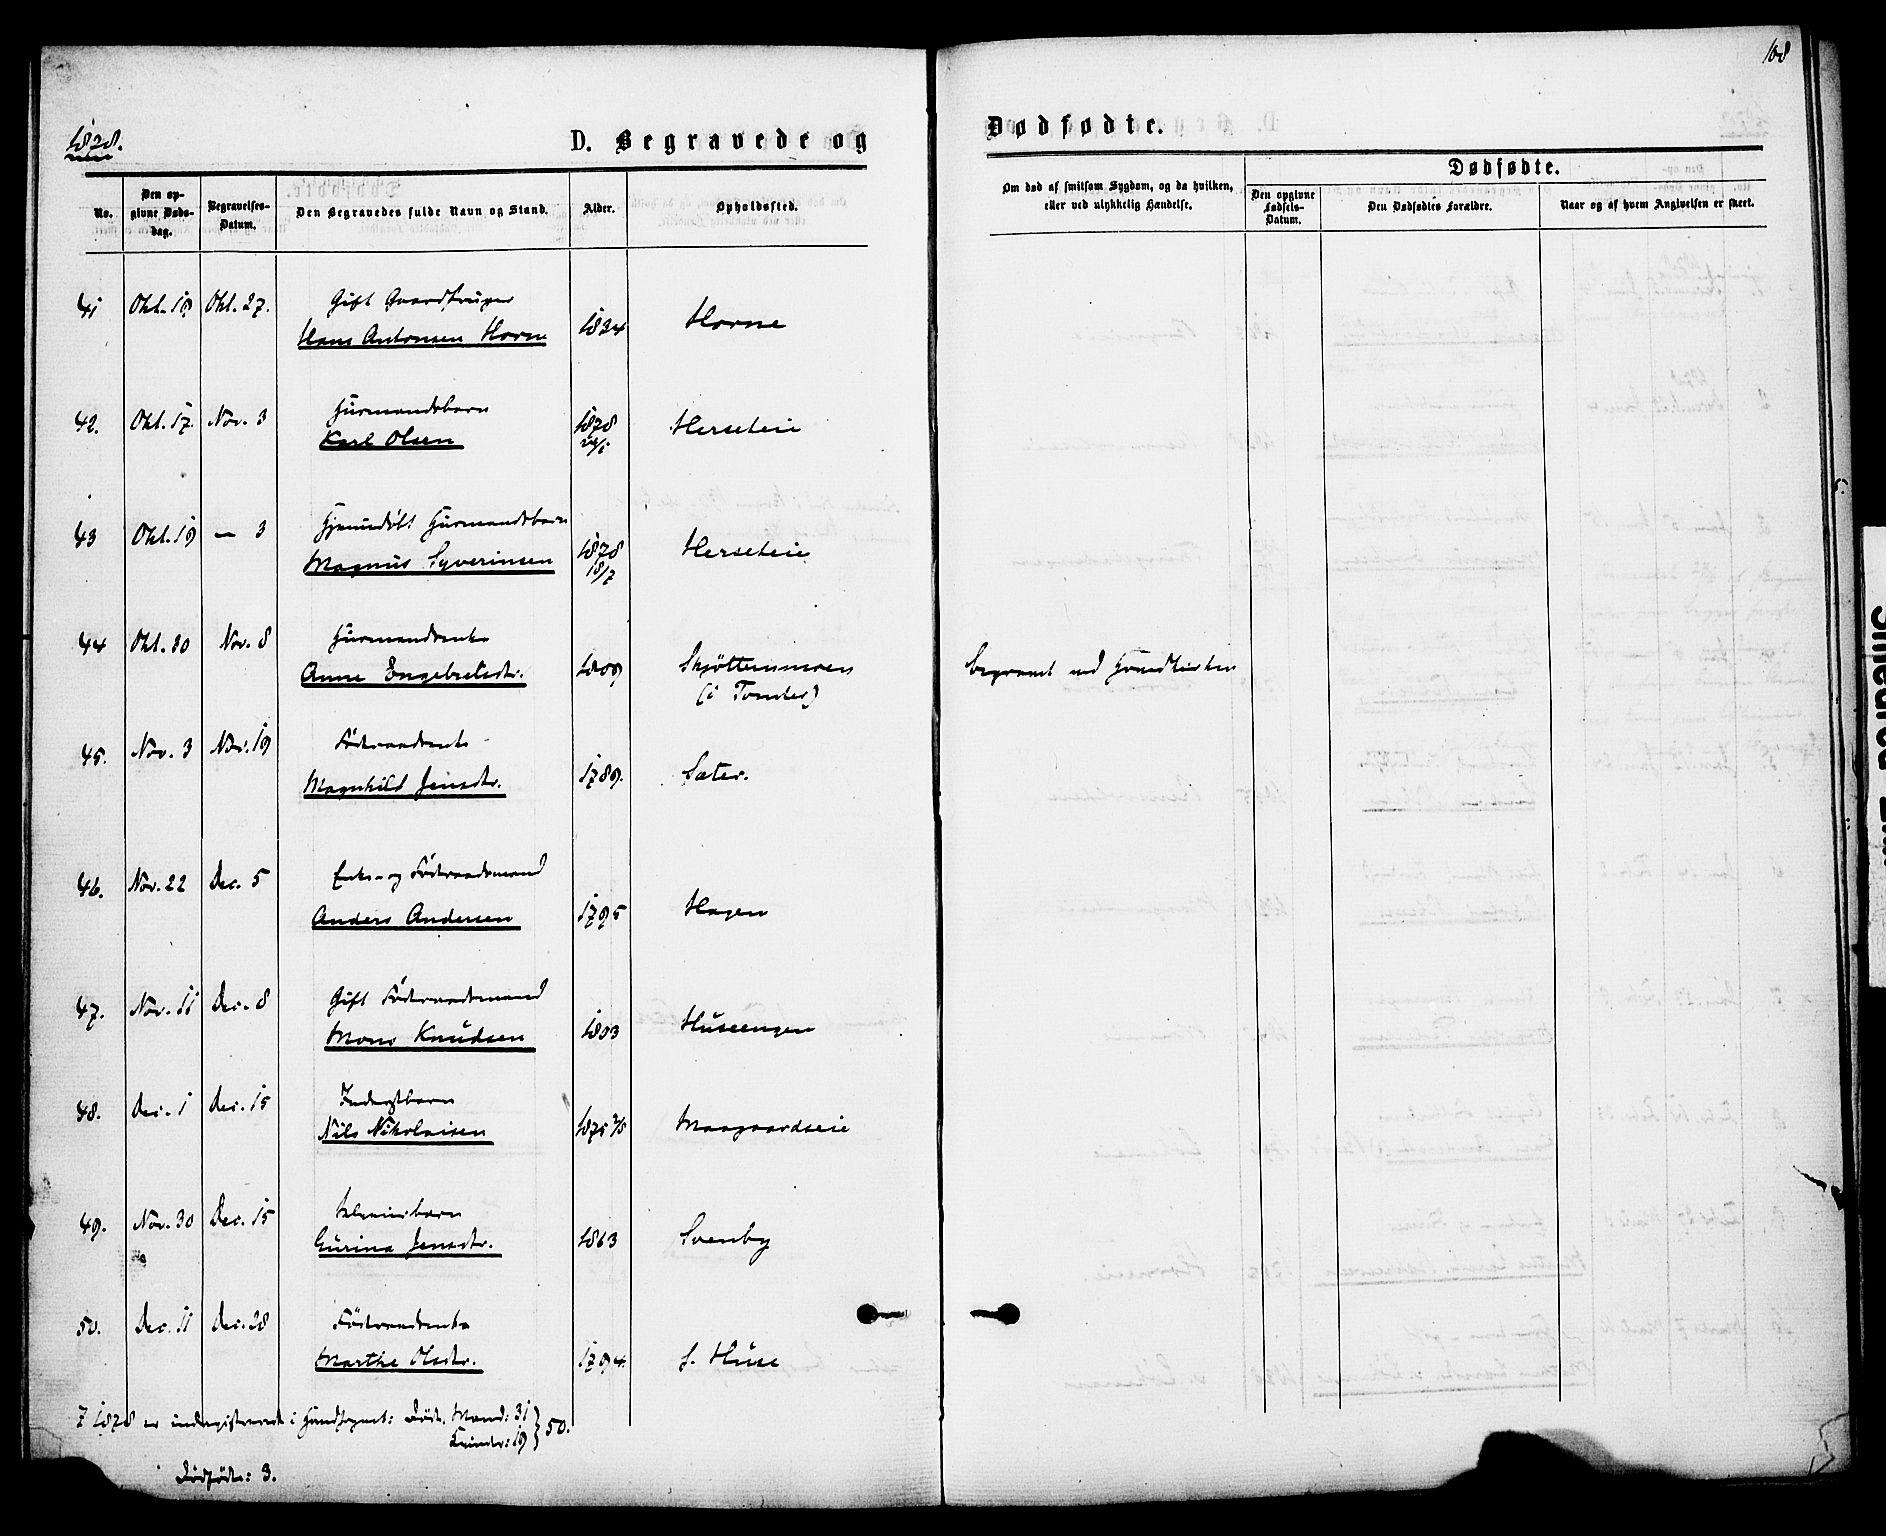 108
1878.
D. Begravede og
Dødfødte.
No.
Den opgivne Dødsdag.
Begravelses-Datum.
Den Begravedes fulde Navn og Stand.
Alder.
Opholdssted.
Om død af smitsom Sygdom, og da hvilken, eller ved ulykkelig Hændelse.
Dødfødte.
Den opgivne Fødsels-Datum.
Den Dødfødtes Forældre.
Naar og af hvem Angivelsen er skeet.
41 Okt. 18 Okt. 27. Gift Gaardbruger
Hans Antonsen Horne 1834 Horne
42. Okt. 17. Nov. 3 Huusmandsbarn
Karl Olsen 1878 Herseteie
43 Okt. 19 — 3 Hjemmedøbt Huusmandsbarn
Magnus Syverinsen 1878 18/7 Herseteie
44 Okt. 30 Nov. 8 Huusmandsenke
Anne Engebretsdtr. 1809 Skjøttensmoen
(i Tomter)
begravet ved
45. Nov. 3 Nov. 19 Føderaadsenke
Magnhild Jensdtr. 1789. Sæter.
46. Nov. 22 Dec. 5 Enke- og Føderaadsmand
Anders Andersen 1795 Hagen
47. Nov. 11 Dec. 8 Gift Føderaadsmand
Mons Knudsen 1803 Huseengen
48. Dec. 1 Dec. 15 Inderstbarn
Nils Nikolaisen 1875 Maagaardseie
49. Nov. 30 Dec. 15
Gurina Jensdtr. 1863 Svenby
50. Dec. 11 Dec. 28 Føderaadsenke
Marthe Olsdtr. 1794. S. Huse
I 1878 er indregistreret i Døde, Mænd: 31 } 50.
Kvinder: 19
Dødfødte: 3.